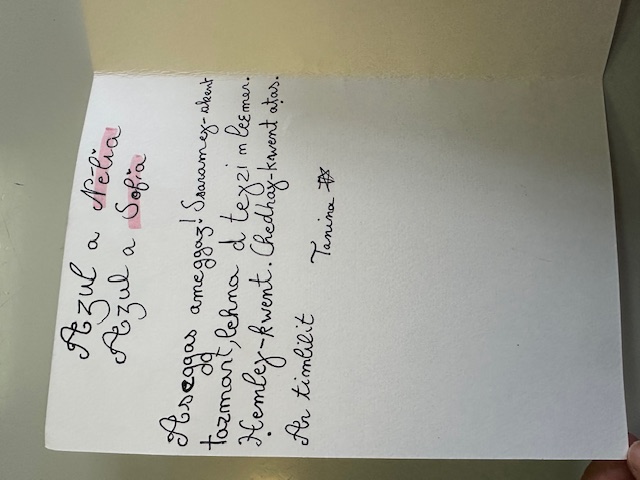 Azul a Nélia
Azul a Sofia
Aseggas ameggaz! Ssarameɣ-akent
dg
tazmart, lehna d teɣzi n leɛmer.
Ḥemleɣ-kwent. Chedhaɣ-kwent aṭas.
Ar timlilit
Tanina